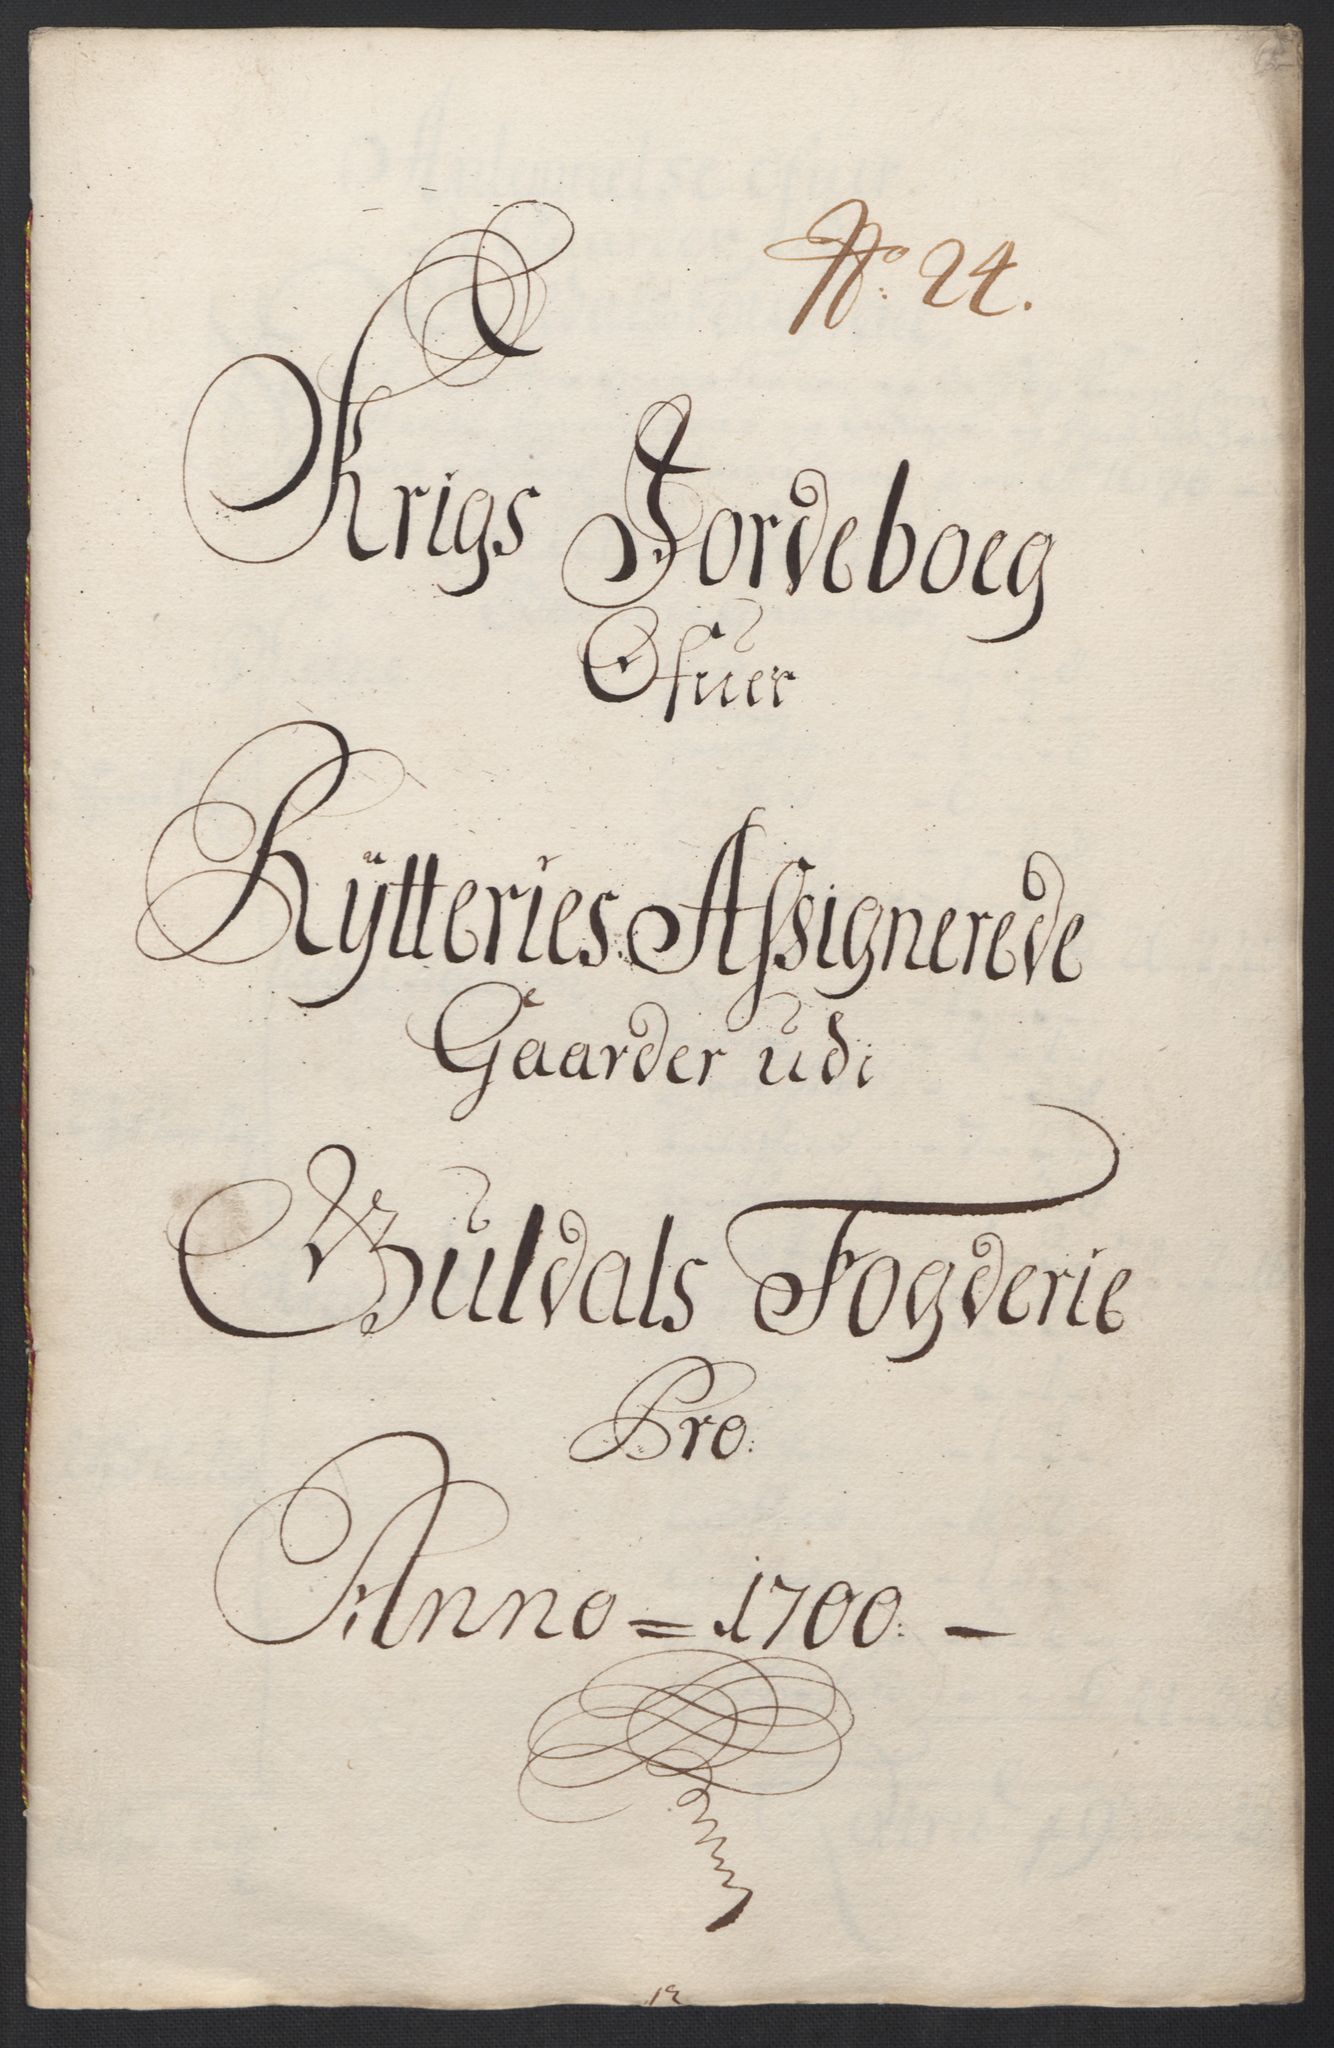 No: 24.
Krigs Jordeboeg
Ofuer
Rÿtteries Assignerede
Gaarder udi
Guldals Fogderie
Pro:
Anno = 1700: –
12